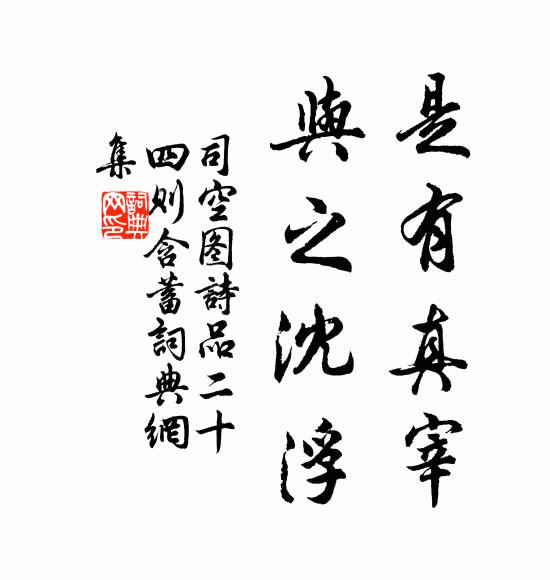 是有真宰
與之沈浮
司空图詩品二十
四则含蓄詞典網
集
詞典
网印